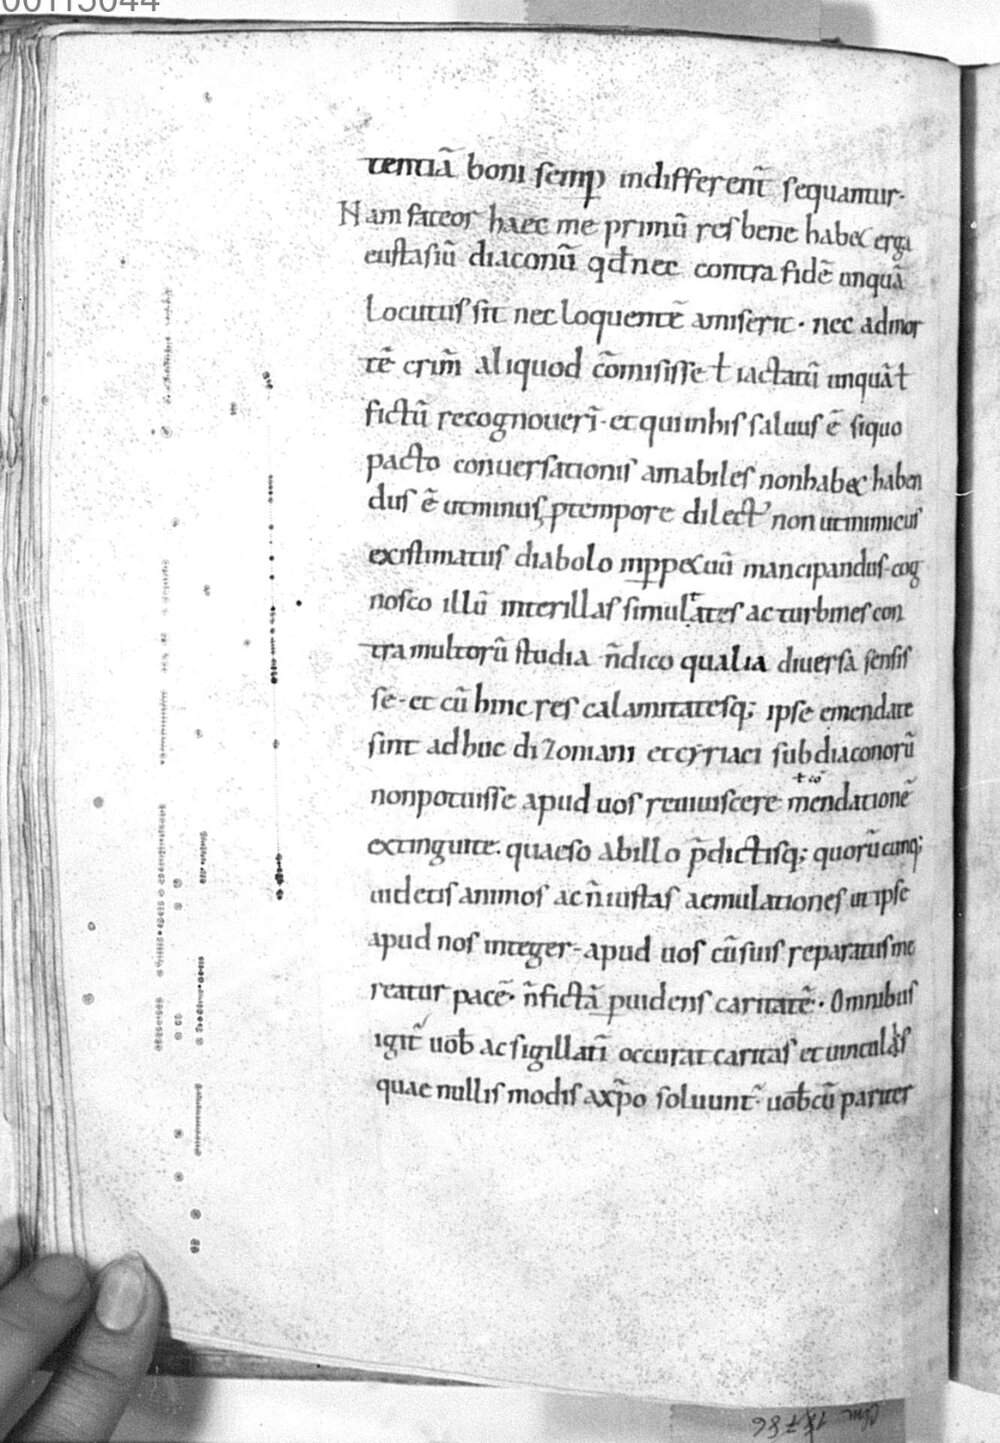 00115044
tentiā boni semꝑ indifferent̄ sequamur·
Nam fateor haec me primū res bene habet erga
eustasiū diaconū qđ nec contra fidē unquā
locutus sit nec loquentē amiserit· nec ad mor
tē crim̄ aliquod cōmisisse ƚ iactatū unquā ƚ
fictū recognouerī· et qui in his saluus ē siquo
pacto conuersationis amabiles non habet haben
dus ē ut minus ꝓ tempore dilect᾽ non ut inimicus
existimatus diabolo in ꝑpetuū mancipandus· cog
nosco illū inter illas simultates ac turbines con
tra multorū studia n̄ dico qualia diuersa sensis
se· et cū hinc res calamitatesq; ipse emendate
sint adhuc di Zomani et cyriaci subdiaconorū
ƚ cō
non potuisse apud uos reuiuiscere mendationē
extinguite. quaeso ab illo p̄dictisq; quorūcunq;
uidetis animos ac n̄ iustas aemulationes ut ipse
apud nos integer· apud uos cū suis reparatus me
reatur pacē· n̄ fictā ꝓuidens caritatē· Omnibus
igit᷑ uob̄ ac sigillatī occurat caritas et uinculis
quae nullis modis a xp̄o soluunt᷑· uob̄cū pariter
Clm 18786